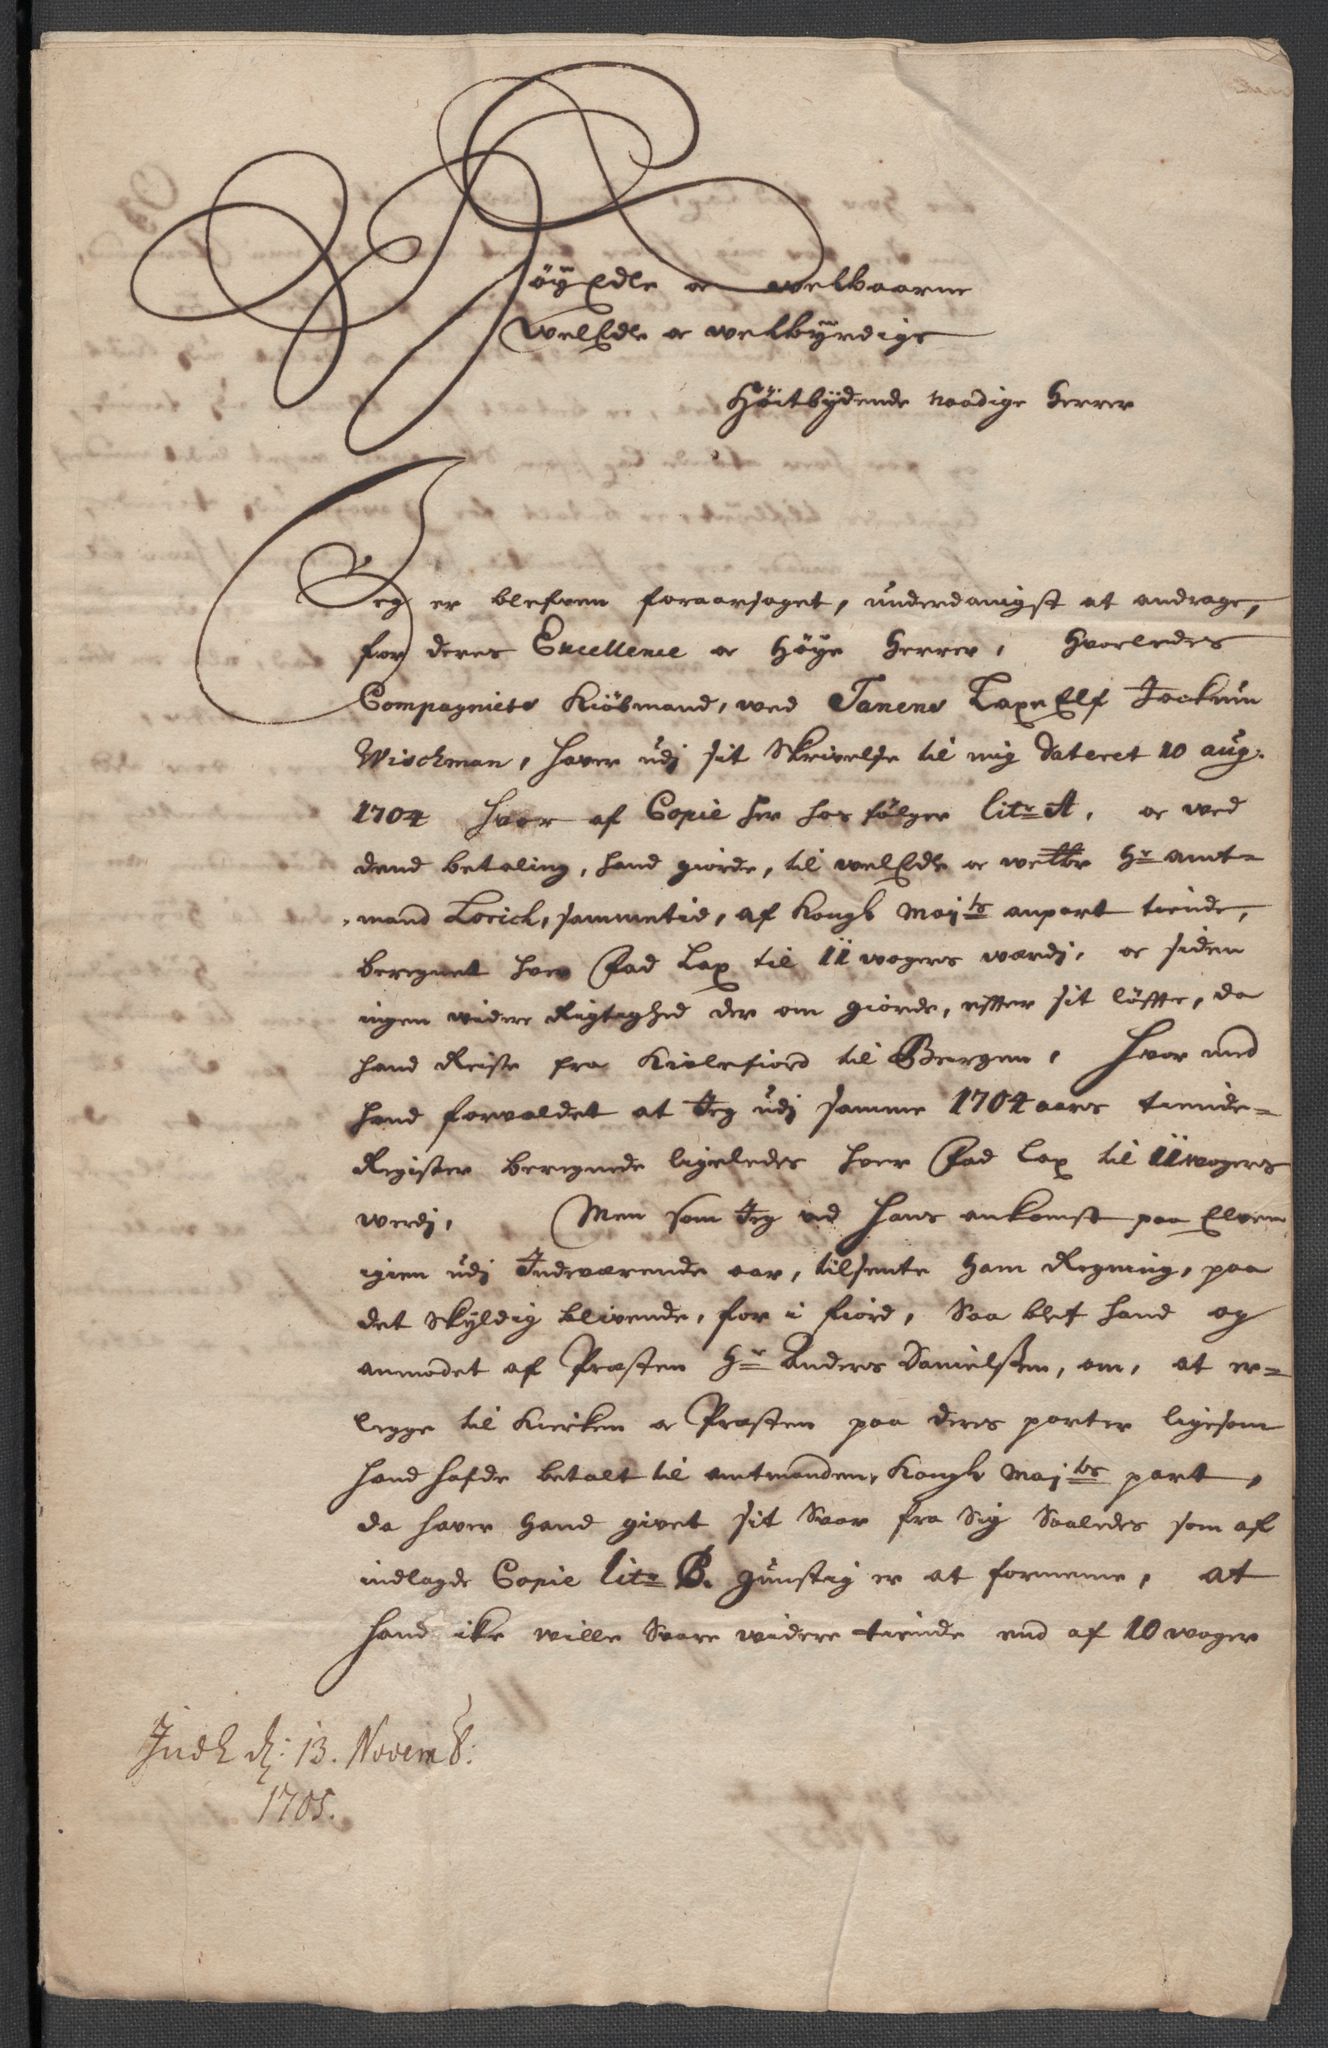 HöyEdle oc welbaarne
WelEdle oc welbÿrdige
Höitbÿdende naadige Herrer
Jeg er blefven foraarsaget, underdanigst at andrage,
for deres Excellence oc Höye Herrer, hvorledes
Compagniets Kiöbmand, ved Tanens LaxeElf Jockum
Wischman, haver udj sit Skrivelse til mig dateret 10 aug:
1704 hvor af Copie her hos fölger litr A, oc ved
dend betaling, hand giorde, til welEdle oc welbr Hr amt=
mand Lorich, sammetid, af Kongl Mayts anpart tiende,
beregnet hver Fad Lax til 11 wogers værdj, oc siden
ingen videre Rigtighed der om giorde, efter sit löffte, da
hand Reiste fra Kiolefiord til Bergen, Hvor med
hand forvoldet at Jeg udj samme 1704 aars tiende=
Register beregnede ligeledes hver Fad Lax til 11 wogers
werdj, Men som Jeg ved hans ankomst paa Elven
igien udj Indeværende aar, tilsente ham Regning, paa
det skÿldig blivende, for i fiord, Saa blef hand og
anmodet af Præsten Hr Anders Danielssen, om, at er=
legge til Kirken oc Præsten paa deres parter ligesom
hand hafde betalt til amtmanden, Kongl Mayts part,
da haver hand givet sit Svar fra Sig Saaledes som af
indlagde Copie litr B. gunstig er at fornemme, at
hand icke wille Svare widere tiende end af 10 woger
Indl d: 13. Novemb:
1705.